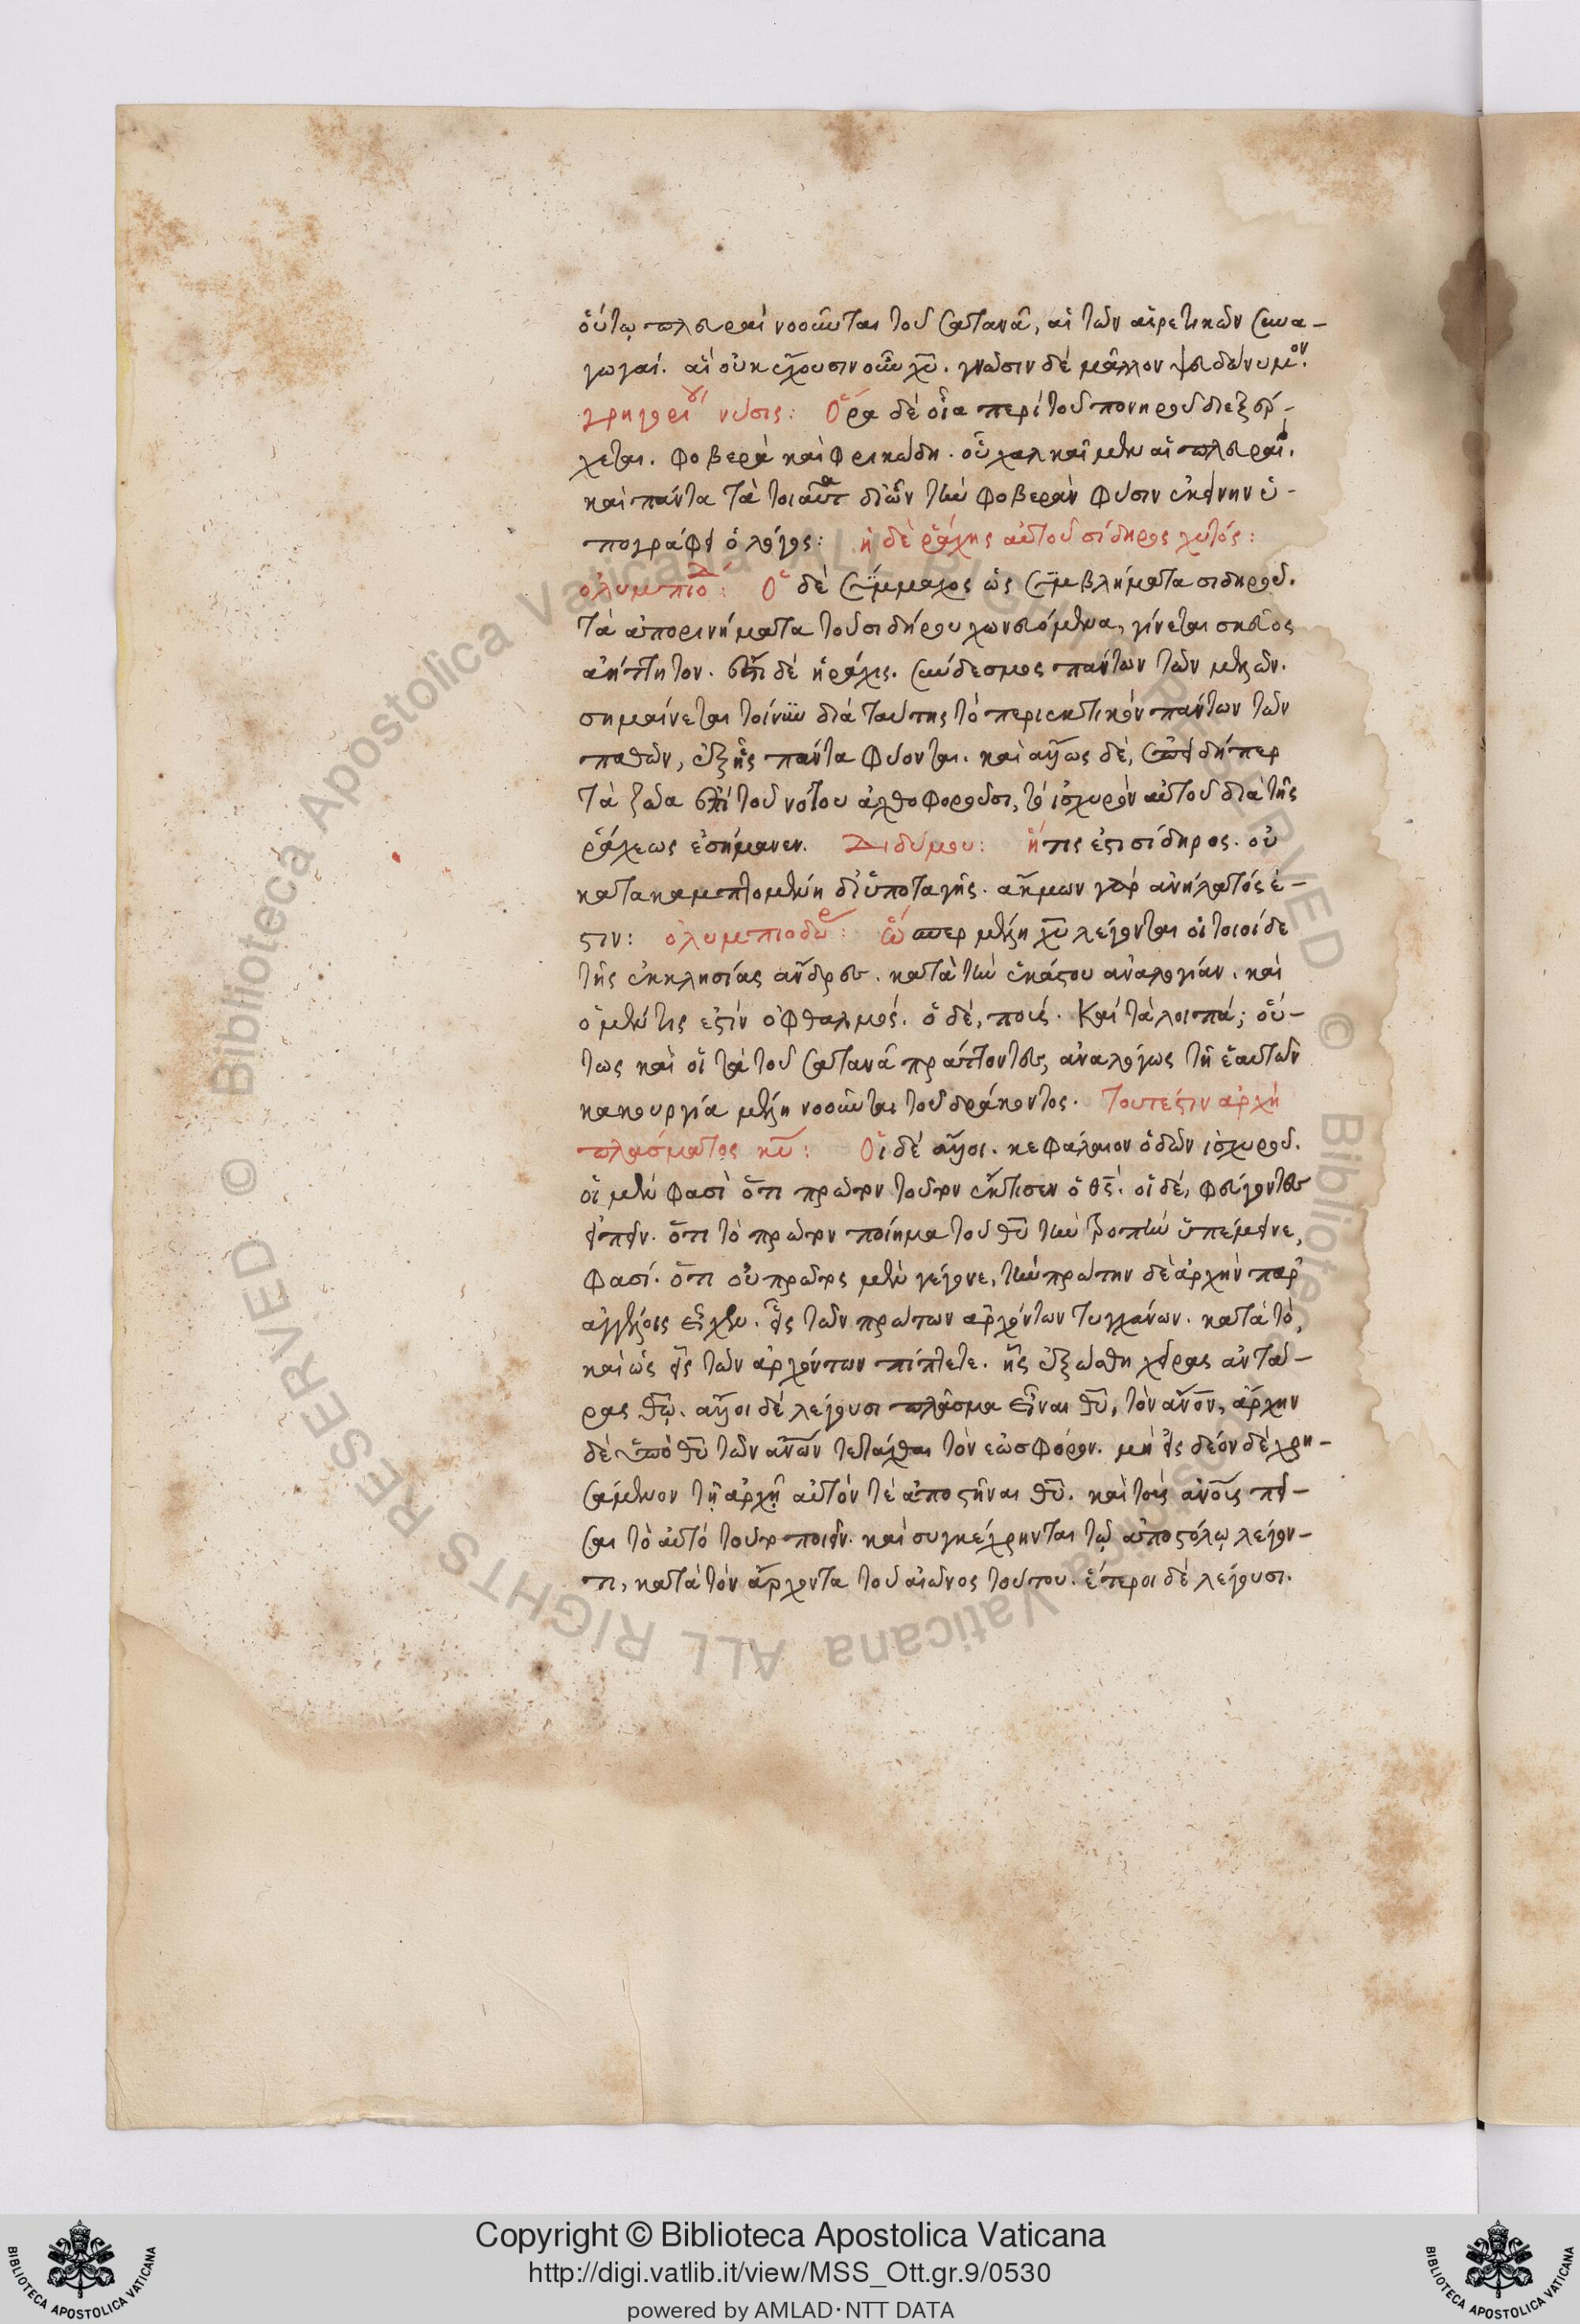 οὕτω πλευραὶ νοοῦνται τοῦ σατανᾶ, αἱ τῶν αἱρετικῶν συνα-
γωγαί. αἳ οὐκ ἔχουσιν νοῦν χυ̅. γνῶσιν δὲ μᾶλλον ψευδώνυμον.
γρηγορίου νύσις: Ὅρα δὲ οἷα περὶ τοῦ πονηροῦ διεξέρ-
χεται. φοβερὰ καὶ φρικώδη. οὗ χαλκαῖ μὲν αἱ πλευραί.
καὶ πάντα τὰ τοιαῦτα δι' ὧν τὴν φοβερὰν φύσιν ἐκείνην ὑ-
πογράφει ὁ λόγος: ἡ δὲ ῥάχης αὐτοῦ σίδηρος χυτός:
ὀλυμπιοδ: Ὁ δὲ σύμμαχος ὡς συμβλήματα σιδηροῦ.
τὰ ἀποκινήματα τοῦ σιδήρου χωνευόμενα, γίνεται σκεῦος
ἀήττητον. ἐπεὶ δὲ ἡ ῥάχις. σύνδεσμος πάντων τῶν μελῶν.
σημαίνεται τοίνυν διὰ ταύτης τὸ περιεκτικὸν πάντων τῶν
παθῶν, ἐξ ἧς πάντα φύονται. καὶ ἄλλως δέ, ἐπειδήπερ
τὰ ζῶα ἐπὶ τοῦ νότου ἀχθοφοροῦσι, τὸ ἰσχυρὸν αὐτοῦ διὰ τῆς
ῥάχεως ἐσήμανεν. Διδύμου: ἥτις ἐστι σίδηρος. οὐ
κατακαμπτομένη δι' ὑποταγῆς. ἀκήμων γὰρ ἀνήλατός ἐ-
στιν: ὀλυμπιοδώρ: ὥσπερ μέλη χυ̅ λέγονται οἱ τοιοίδε
τῆς ἐκκλησίας ἄνδρες. κατὰ τὴν ἑκάστου ἀναλογίαν. καὶ
ὁ μέν τις ἐστὶν ὀφθαλμός. ὁ δέ, πούς. Καὶ τὰ λοιπά; οὕ-
τως καὶ οἱ τὰ τοῦ σατανᾶ πράττοντες, ἀναλόγως τῇ ἑαυτῶν
κακουργία μέλη νοοῦνται τοῦ δράκοντος. Τουτέστιν ἀρχὴ
πλάσματος κυ̅: Οἱ δὲ ἄλλοι. κεφάλαιον ὁδῶν ἰσχυροῦ.
οἱ μὲν φασὶ ὅτι πρῶτον τοῦτον ἔκτισεν ὁ θς̅. οἱ δέ, φεύγοντες
εἰπεῖν. ὅτι τὸ πρῶτον ποίημα τοῦ θυ̅ τὴν ῥοπὴν ὑπέμεινε,
φασί. ὅτι οὐ πρῶτος μὲν γέγονε, τὴν πρώτην δὲ ἀρχὴν παρ'
ἀγγέλοις εἶχεν. εἷς τῶν πρώτων ἀρχόντων τυγχάνων. κατὰ τό,
καὶ ὡς εἷς τῶν ἀρχόντων πίπτετε. ἧς ἐξώσθη χεῖρας ἀντά-
ρας θω̅. ἄλλοι δὲ λέγουσι πλάσμα εἶναι θυ̅, τὸν ανον̅, ἄρχην
δὲ ὑπὸ θυ̅ τῶν ανων̅ τετάχθαι τὸν ἑωσφόρον. μὴ εἰς δέον δὲ χρη-
σάμενον τῇ ἀρχῇ αὐτόν τε ἀποστῆναι θυ̅. καὶ τοὺς ανους̅ πεῖ-
σαι τὸ αὐτὸ τοῦτο ποιεῖν. καὶ συγκέχρηνται τῷ ἀποστόλω λέγον-
τι, κατὰ τὸν ἄρχοντα τοῦ αἰῶνος τούτου. ἕτεροι δὲ λέγουσι.
Copyright © Biblioteca Apostolica Vaticana
http://digi.vatlib.it/view/MSS_Ott.gr.9/0530
powered by AMLAD·NTT DATA
BIBLIOTECA APOSTOLICA VATICANA
BIBLIOTECA APOSTOLICA VATICANA
© Biblioteca Apostolica Vaticana ALL RIGHTS RESERVED © Biblioteca Apostolica Vaticana ALL RIGHTS RESERVED